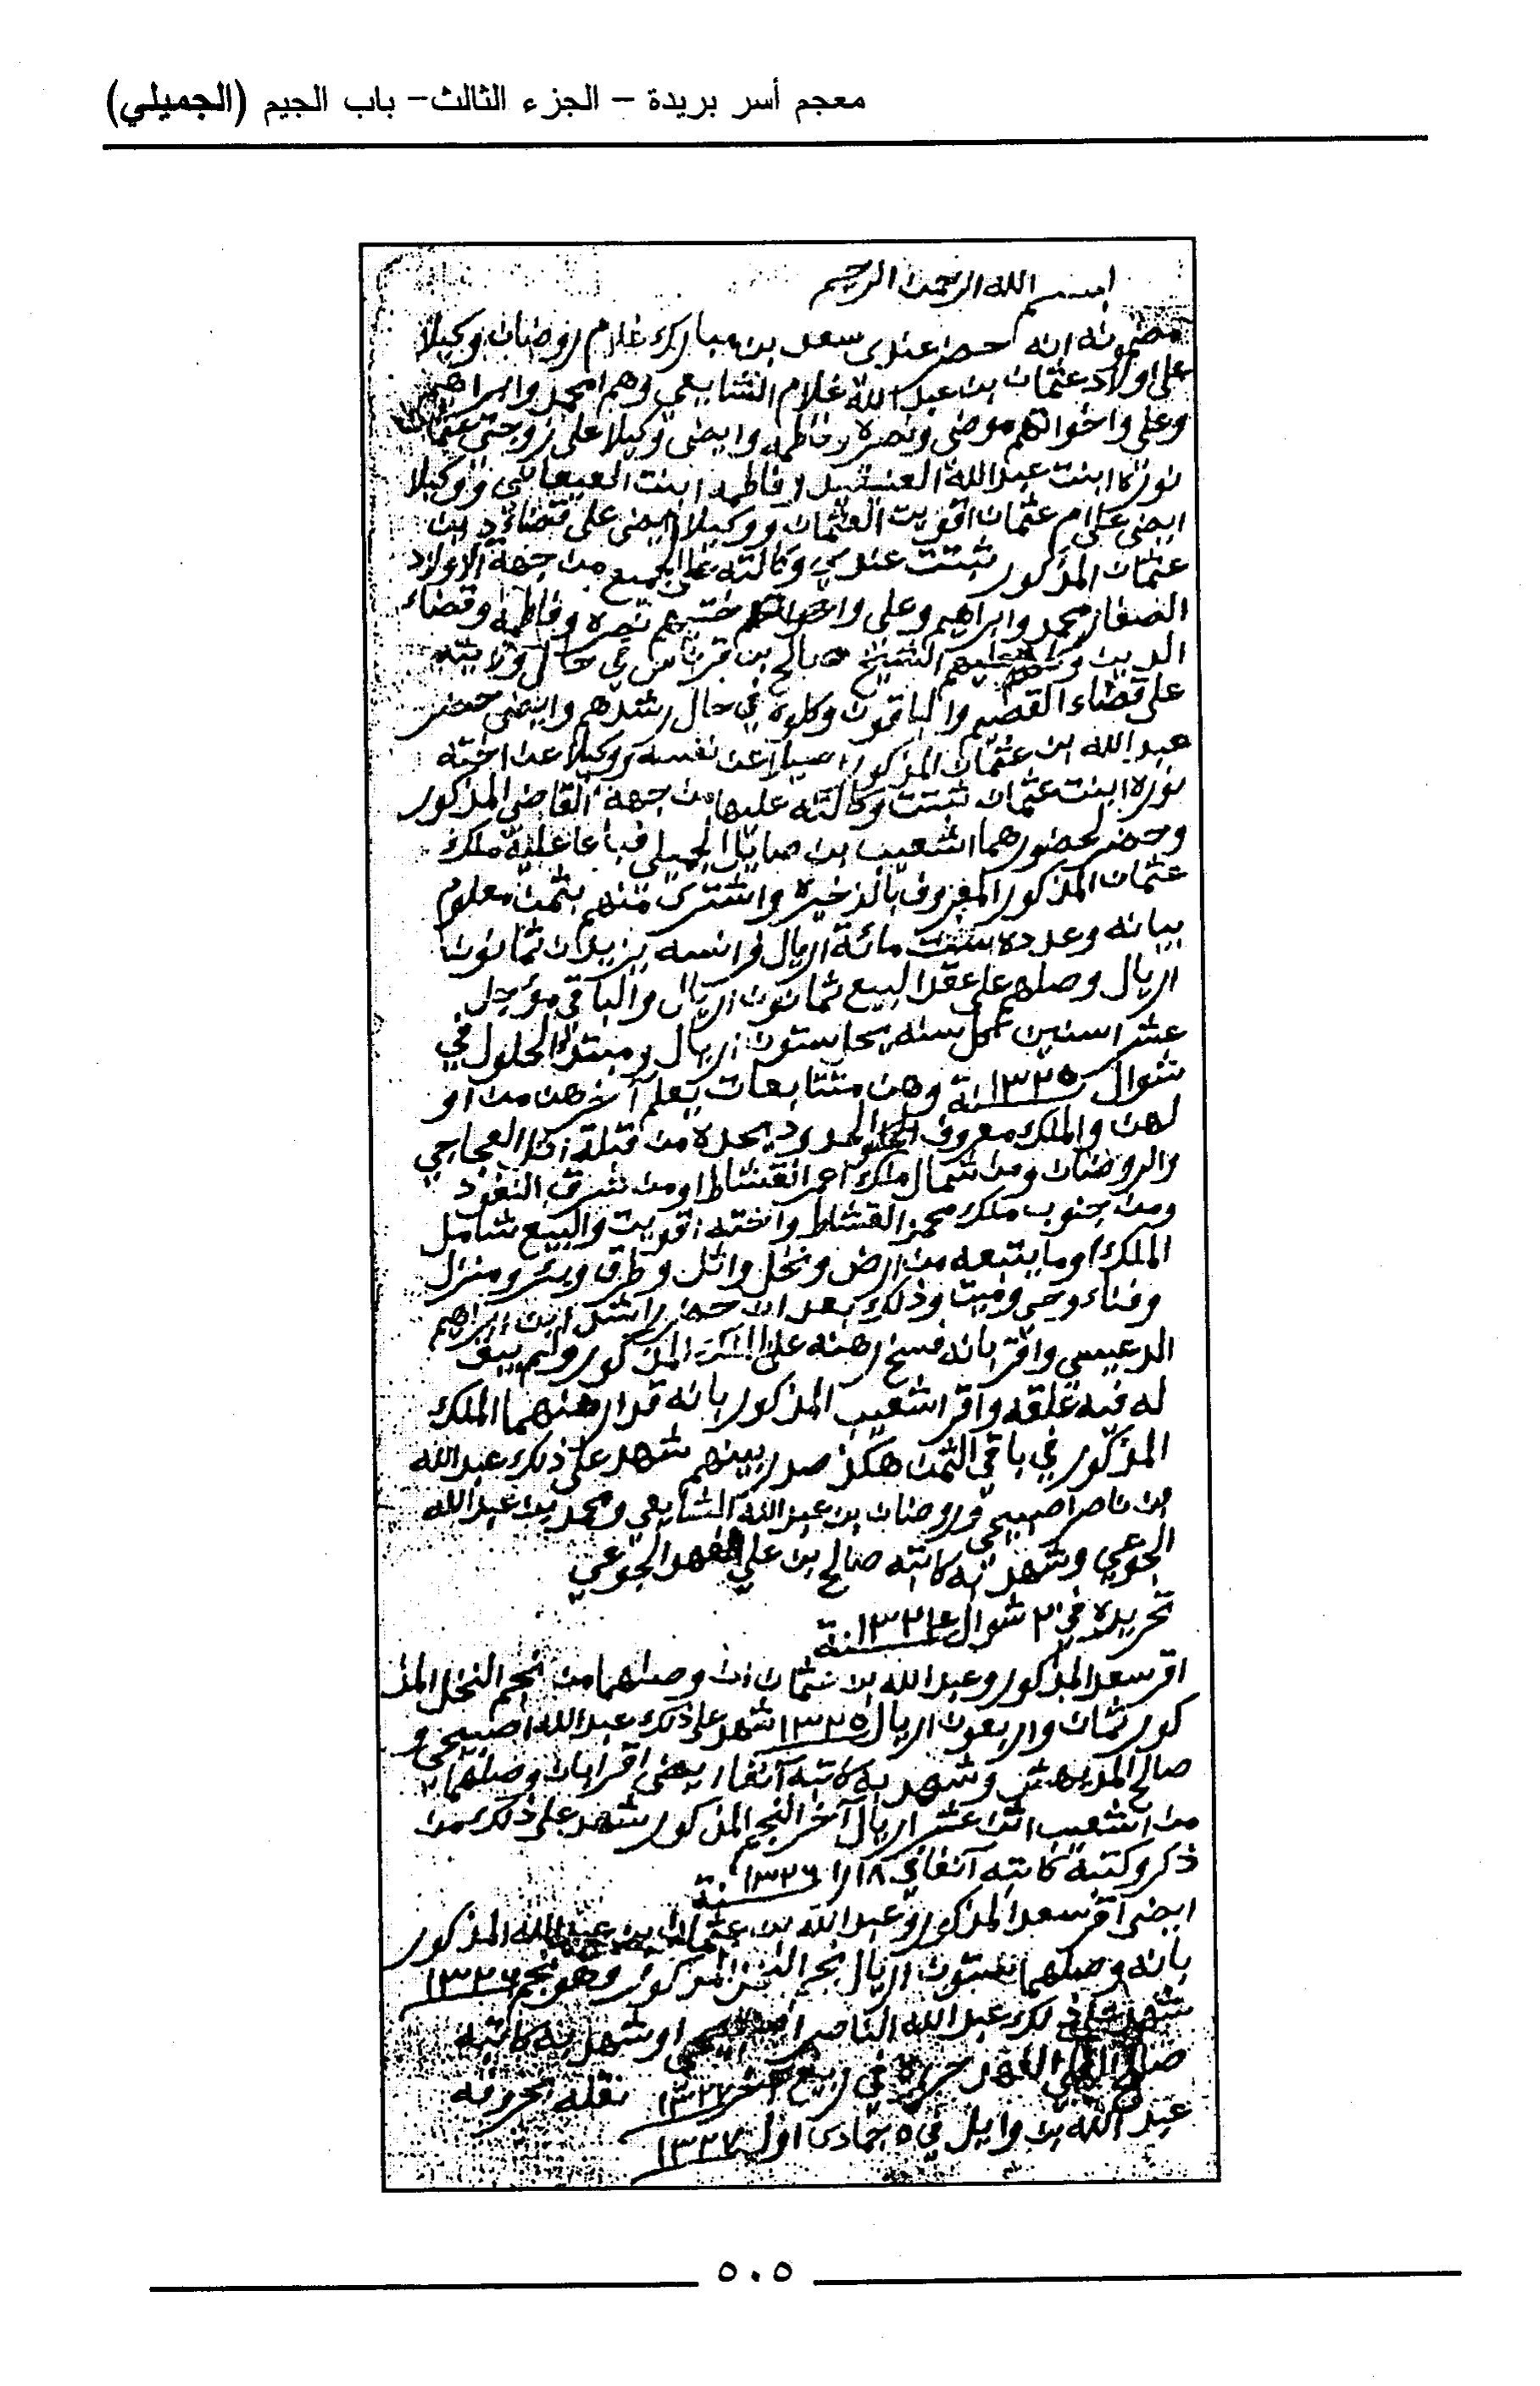 معجم أسر بريدة – الجزء الثالث – باب الجيم (الجميلي)
بسم الله الرحمن الرحيم
مضمونه انه حضر عندي سعد بن مبارك غلام روضان وكيلا
على اولاد عثمان بن عبد الله غلام الشايعي وهم محمد وابراهيم
وعلي واخواتهم موضي ونصره وفاطمه وايضى وكيلا على زوجتي عثمان
نوره ابنت عبد الله وفاطمه ابنت ووكيلا
ايضى على ام عثمان اقويت العثمان ووكيلا ايضى على قضاء دين
عثمان المذكور ثبتت عندي وكالته على الجميع من جهة الاولاد
الصغار محمد وابراهيم وعلي واخواتهم نصره وفاطمه وقضاء
الدين الشيخ صالح بن قرناس في حال ولايته
على قضاء القصيم والباقون وكلوه في حال رشدهم وايضى حضر
عبد الله ابن عثمان المذكور اصيلا عن نفسه ووكيلا عن اخته
نوره ابنت عثمان ثبتت وكالته عليها من جهة القاضي المذكور
وحضر لحضورهما اشعيب بن صايل الجميلي فباعا عليه ملك
عثمان المذكور المعروف بالذخيره واشترى منهم بثمن معلوم
بيانه وعدده ست مائة اريال فرانسه يزيدن ثمانون
اريال وصلهم على عقد البيع ثمانون اريال والباقي مؤجل
عشر اسنين كل سنه يحل ستون اريال ومبتدا الحلول في
شوال ١٣٢٥سنة وهن متتابعات يعلم آخرهن من او
لهن والملك معروف الحدود يحده من قبلة العجاجي
والروضان ومن شمال ملك القشاط ومن شرق النفود
ومن جنوب ملك محمد القشاط واخته اقويت والبيع شامل
الملك وما يتبعه من ارض ونخل واثل وطرق وبئر ومنزل
وفناء وحي وميت وذلك بعد ان حضر راشد ابن ابراهيم
الدعيسي واقر بانه فسخ رهنه على الملك المذكور ولم يبق
له فيه علقه واقر اشعيب المذكور بانه قد ارهنهما الملك
المذكور في باقي الثمن هكذ صدر بينهم شهد على ذلك عبد الله
بن ناصر اصبيحي وروضان بن عبد الله الشايعي ومحمد بن عبد الله
الجوعي وشهد به كاتبه صالح بن علي الفهد الجوعي
تحريره في ٢ شوال ١٣٢٤سنة
اقر سعد المذكور وعبد الله بن عثمان ان وصلهما من نجم النخل المذ
كور ثمان واربعون اريال ١٣٢٥ شهد على ذلك عبد الله اصبيحي و
صالح المديهش وشهد به كاتبه آنفا ايضى اقرا بان وصلهما
من اشعيب اثن عشر اريال آخر النجم المذكور شهد على ذلك من
ذكر وكتبه كاتبه آنفا في ١٨ را ١٣٢٦سنة
ايضى اقر سعد المذكور وعبد الله بن عثمان بن عبد الله المذكور
بانه وصلهما ستون اريال نجم الثمن المذكور وهو نجم ١٣٢٦
شهد على ذلك عبد الله الناصر اصبيحي وشهد به كاتبه
صالح العلي الفهد حرره في ربيع آخر ١٣٢٧ نقله بحروفه
عبد الله بن وايل في ٥ جمادى اول ١٣٢٧
٥٠٥